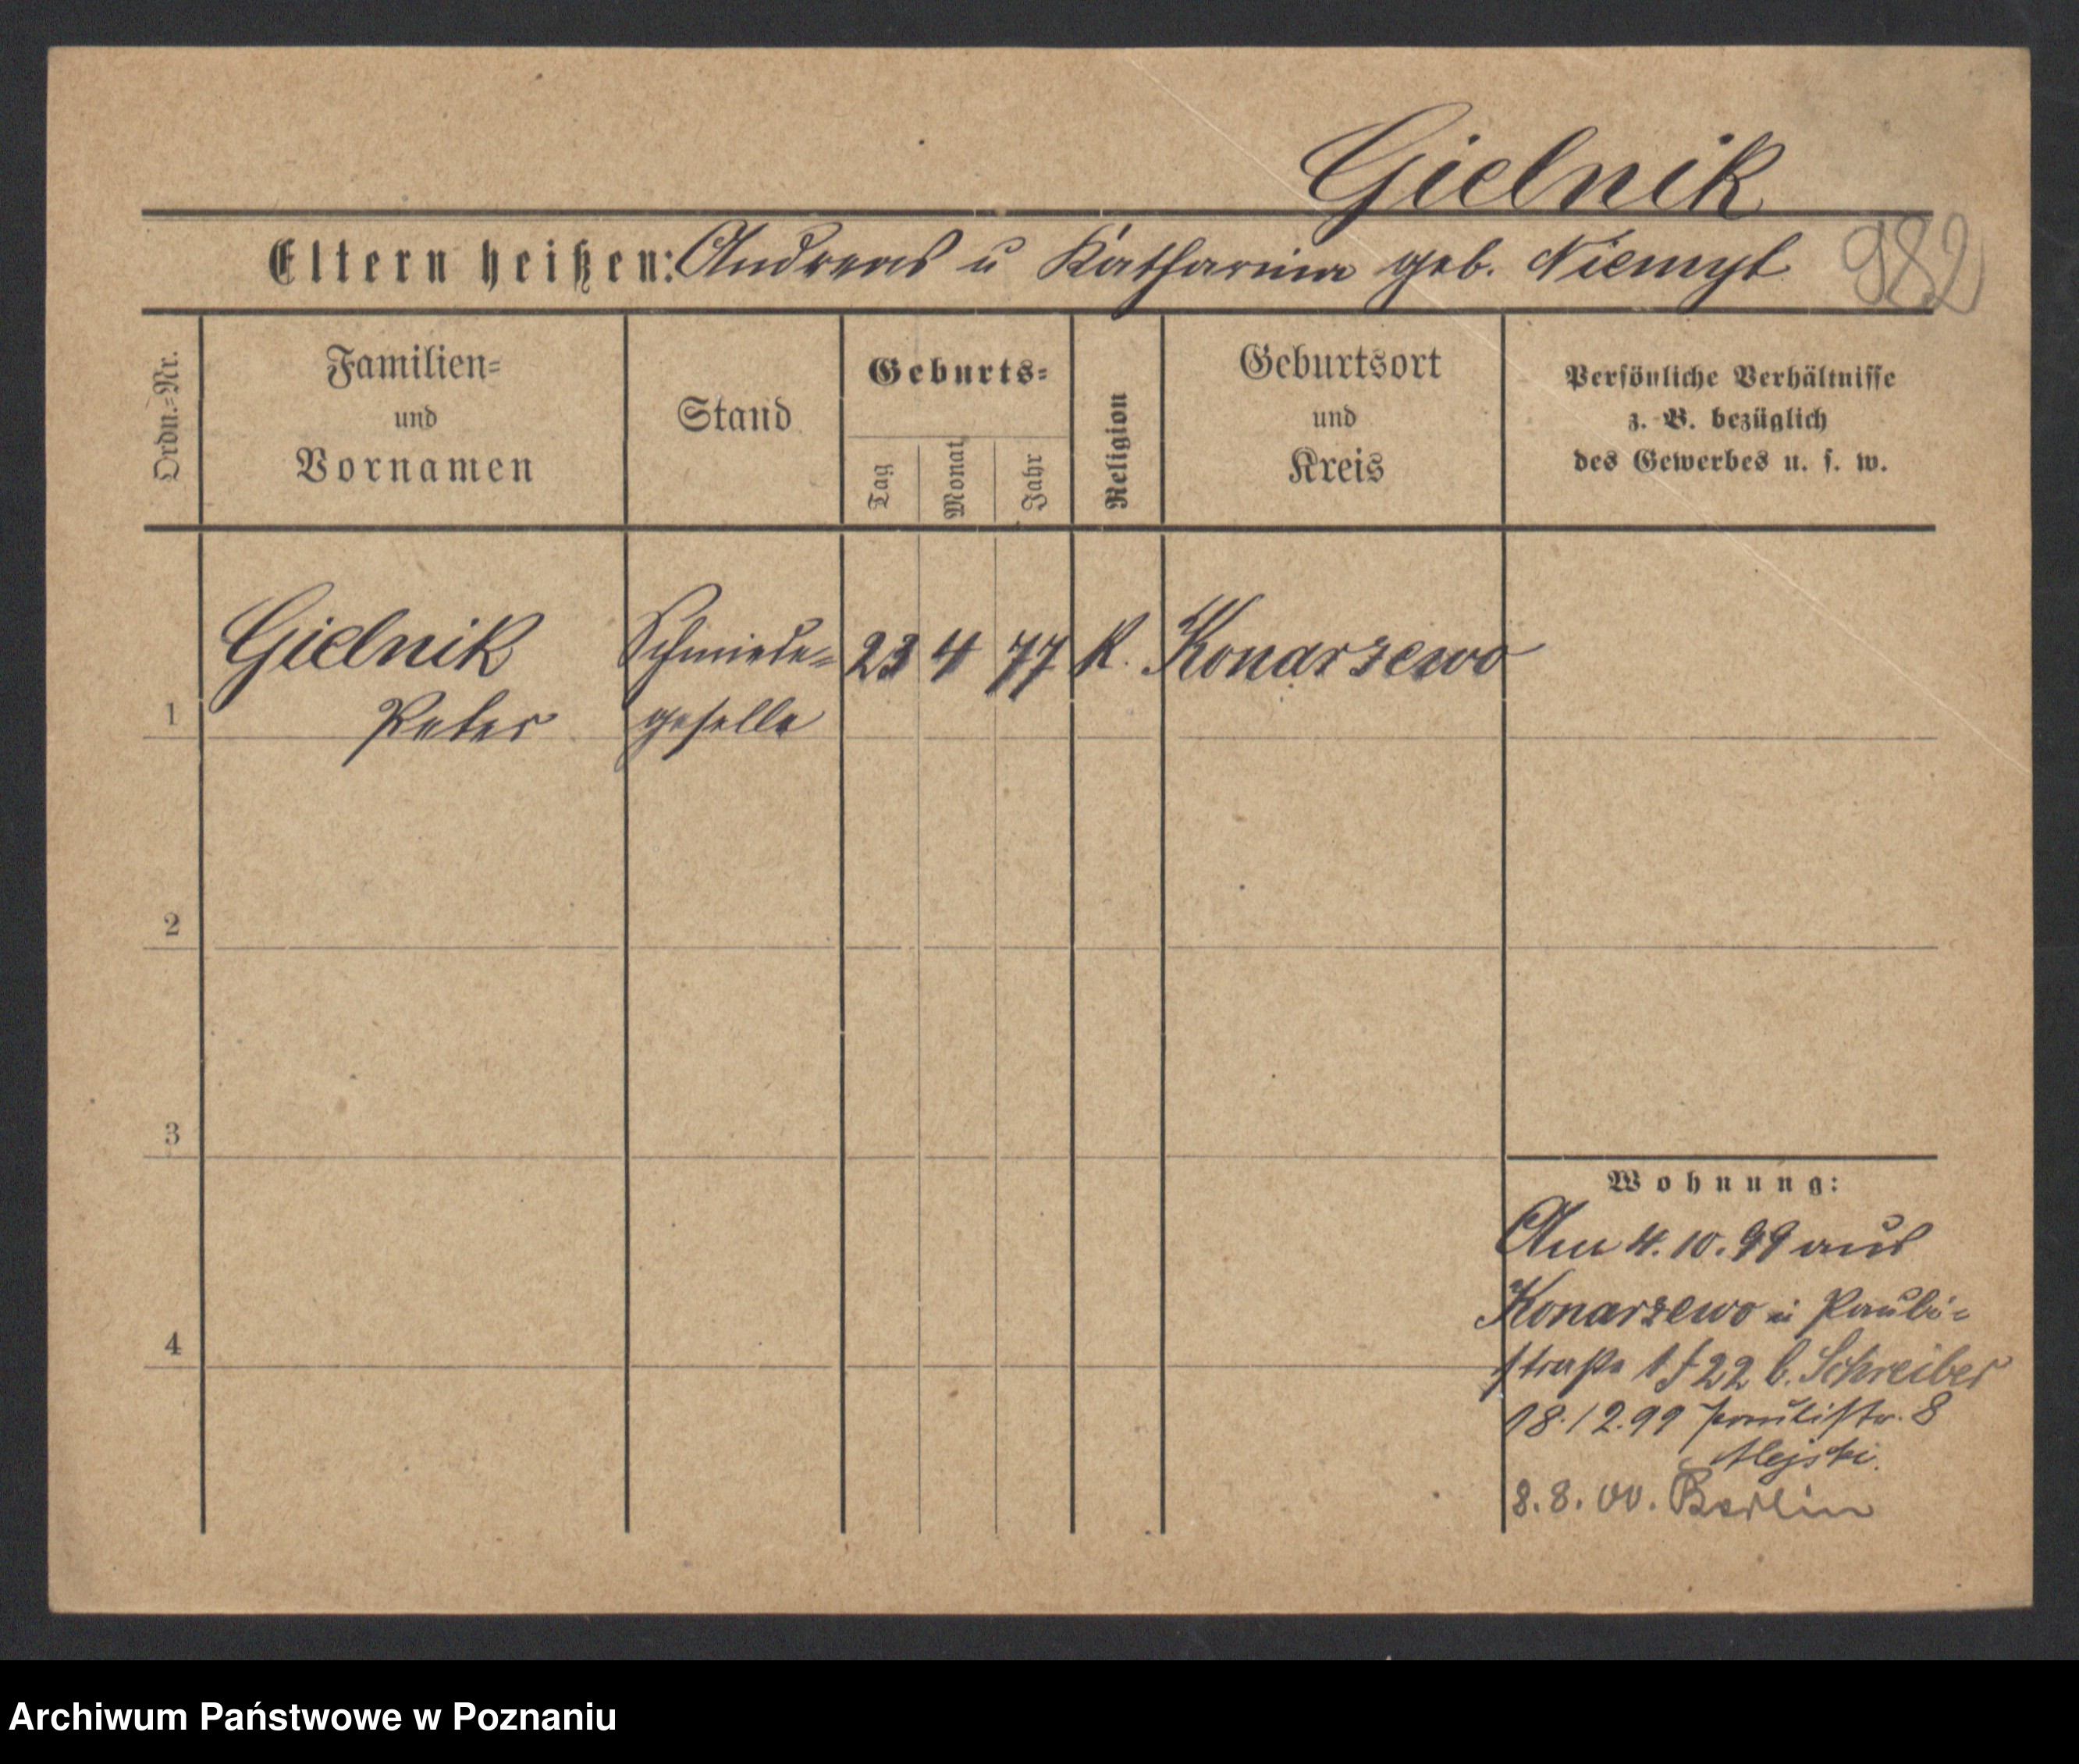 Gielnik
Eltern heißen: Andreas u Katharina geb. Niemyt
982
Ordn.-Nr.
Familien-
und
Vornamen
Stand
Geburts-
Tag
Monat
Jahr
Religion
Geburtsort
und
Kreis
Persönliche Verhältnisse
z. B. bezüglich
des Gewerbes u. s. w.
1
Gielnik
Peter
Schmiede-
geselle
23
4
77
K.
Konarzewo
2
3
4
Wohnung:
Am 4. 10. 99 aus
Konarzewo n Pauli-
straße 22 b. Schreiber
18.12.99 Paulistr. 8
Alejski.
8. 8. 00. Berlin
Archiwum Państwowe w Poznaniu